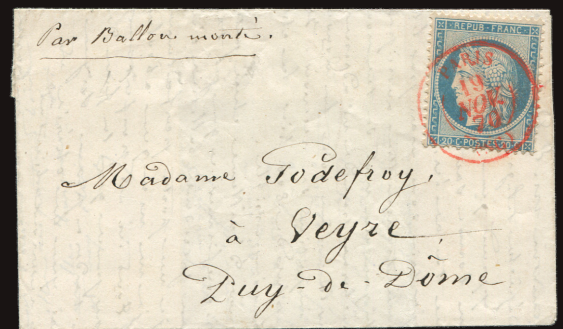 Par Ballon monté.
REPUB. FRANC.
PARIS
19
NOV.
70
20 C POSTES 20 C
Madame Godefroy,
à Veyre,
Puy-de-Dôme